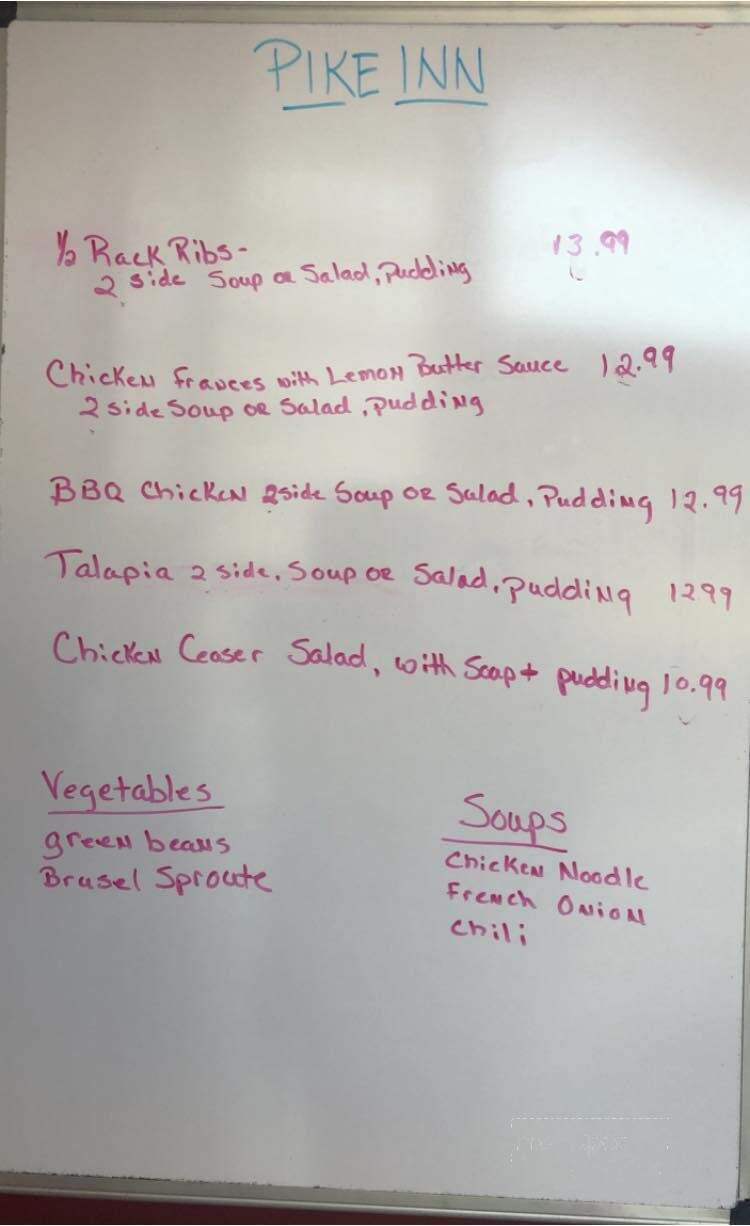 PIKE INN
1/2 Rack Ribs- 13.99
2 side Soup or Salad, Pudding
Chicken Frances with Lemon Butter Sauce 12.99
2 side Soup or Salad, Pudding
BBQ Chicken 2side Soup or Salad, Pudding 12.99
Talapia 2 side, Soup or Salad, pudding 1299
Chicken Ceaser Salad, with Soap + pudding 10.99
Vegetables
green beans
Brusel Sproute
Soups
Chicken Noodle
French Onion
Chili